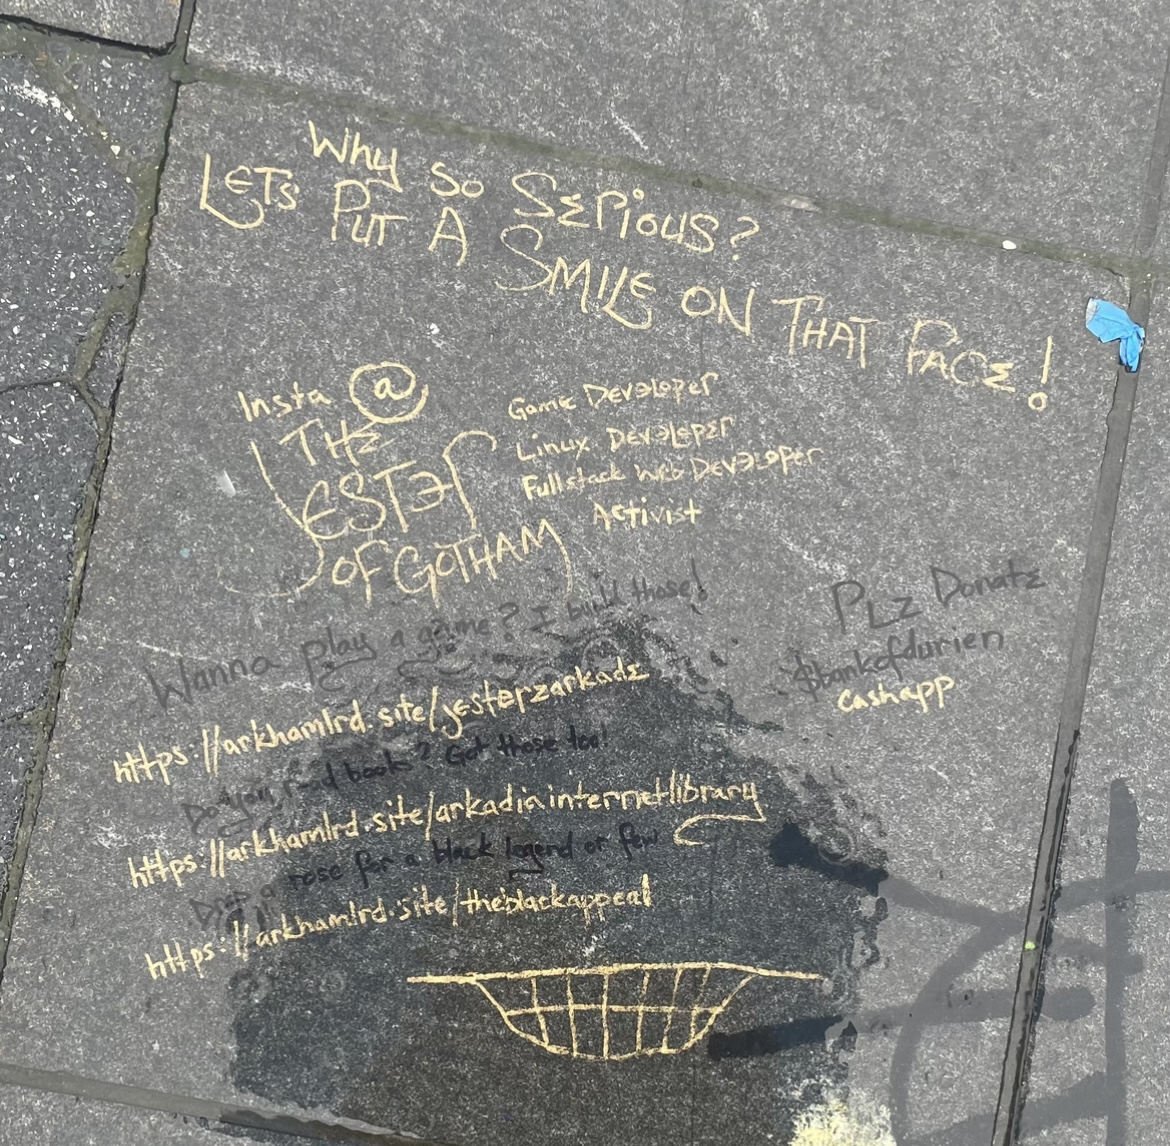 Why So Serious?
LETS PUT A SMILE ON THAT FACE!
Insta @
THE
JESTER
OF GOTHAM
Game Developer
Linux Developer
Fullstack Web Developer
Activist
Wanna play a game? I build those!
https://arkhamlrd.site/jesterzarkade
Do you read books? Got those too!
https://arkhamlrd.site/arkadiainternetlibrary
Drop a rose for a black legend or few
https://arkhamlrd.site/theblackappeal
PLz Donate
$bankofdurien
cashapp